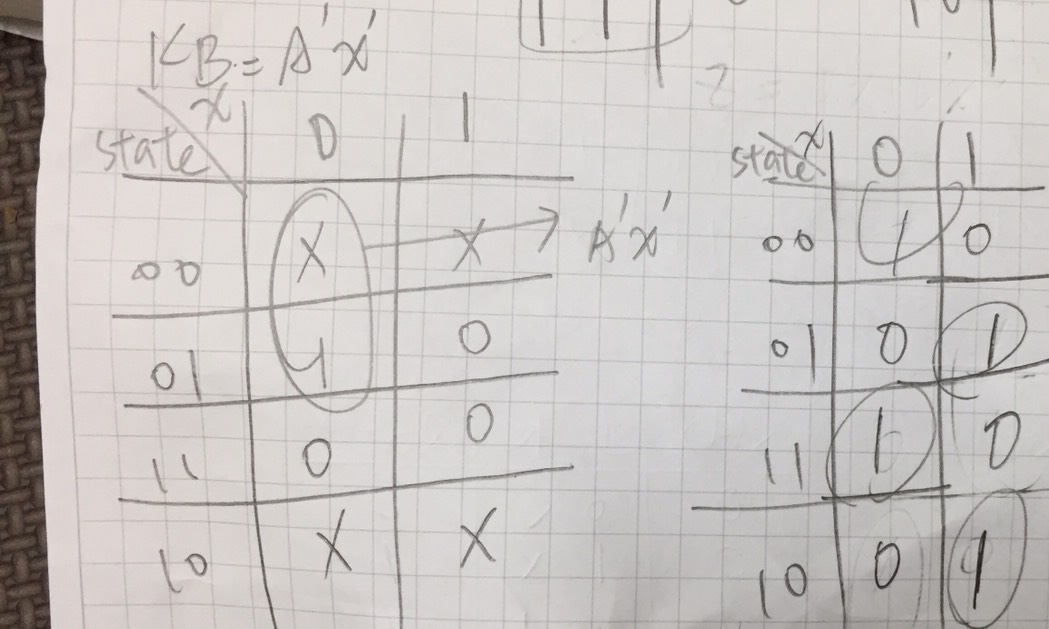 KB = A'x'
x 0 1
state
00 X X A'x'
01 1 0
11 0 0
10 X X
state x 0 1
00 1 0
01 0 1
11 1 0
10 0 1